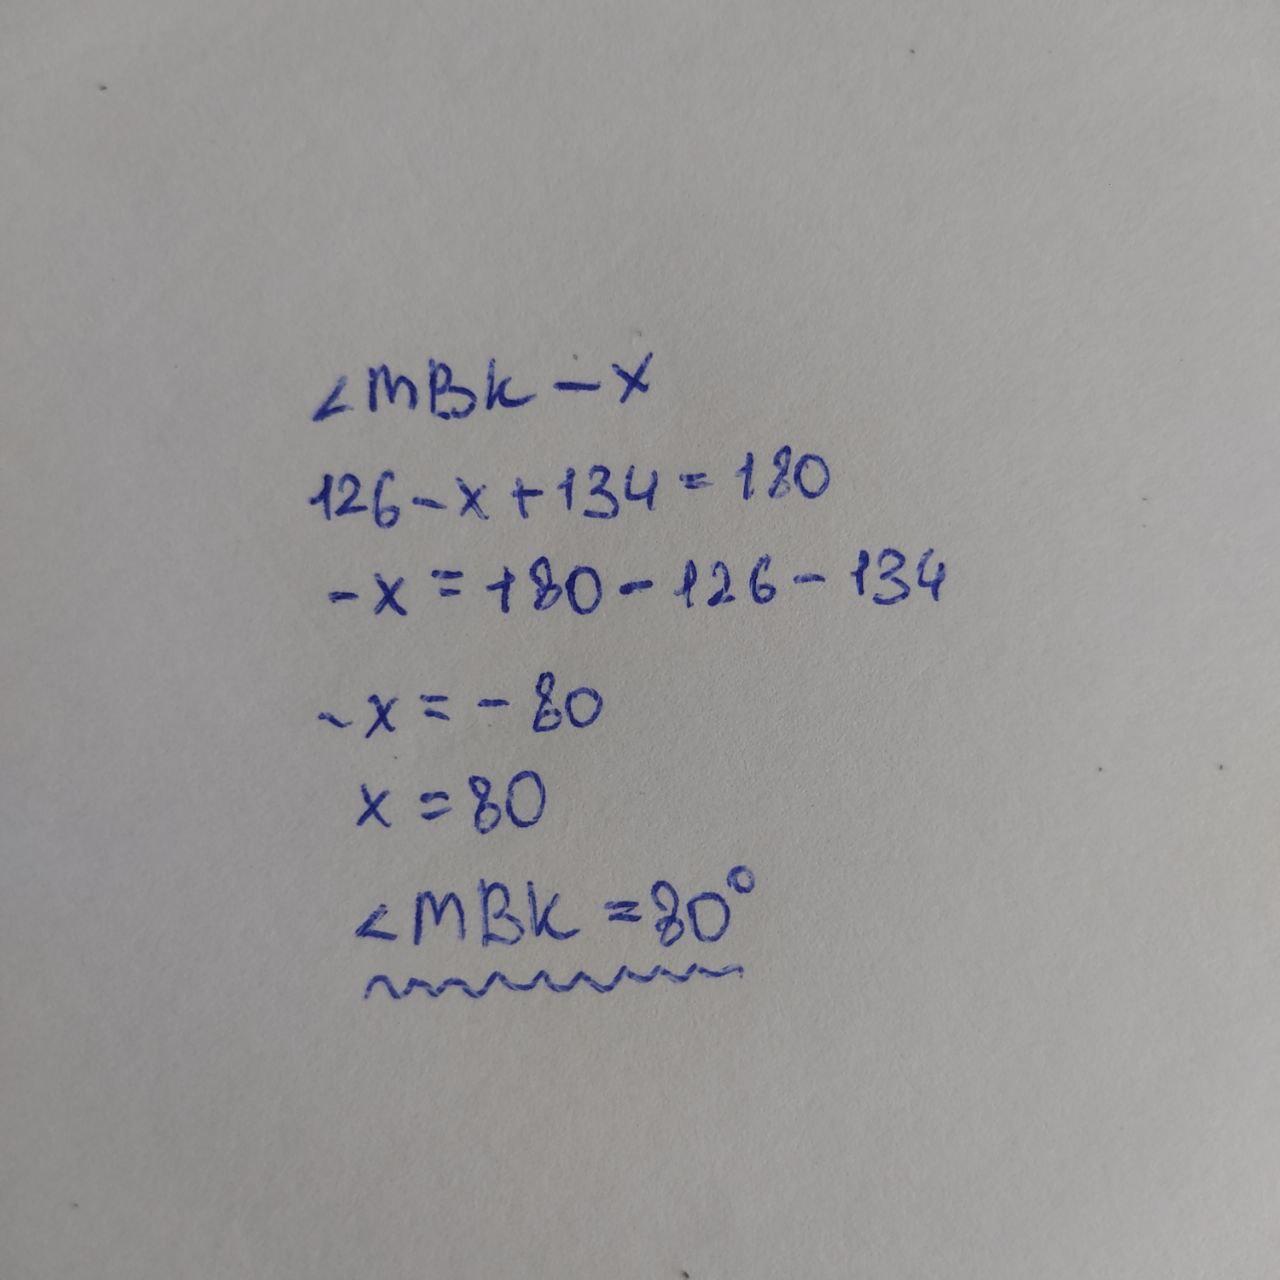 ∠MBK – x
126 – x + 134 = 180
-x = 180 – 126 – 134
-x = -80
x = 80
∠MBK = 80°